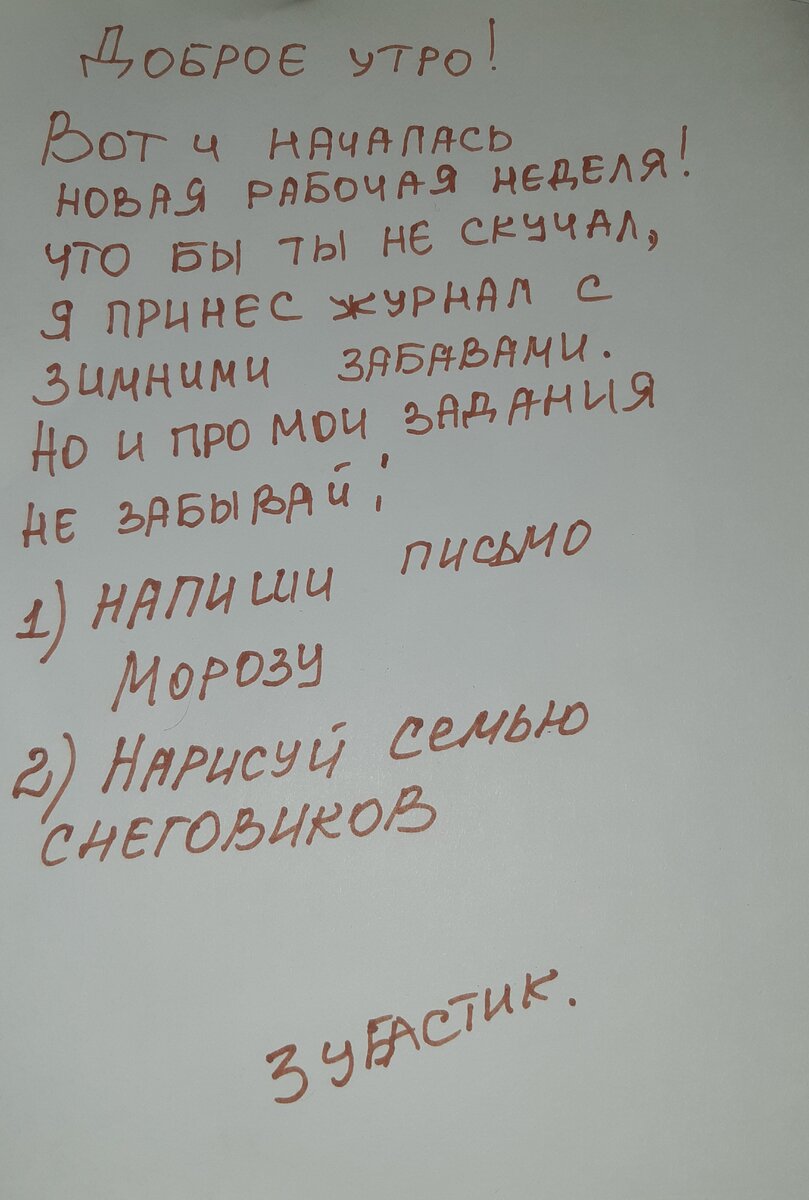 Доброе утро!
Вот и началась
новая рабочая неделя!
что бы ты не скучал,
я принес журнал с
зимними забавами.
Но и про мои задания
не забывай!
1) Напиши письмо
Морозу
2) Нарисуй семью
снеговиков
Зубастик.